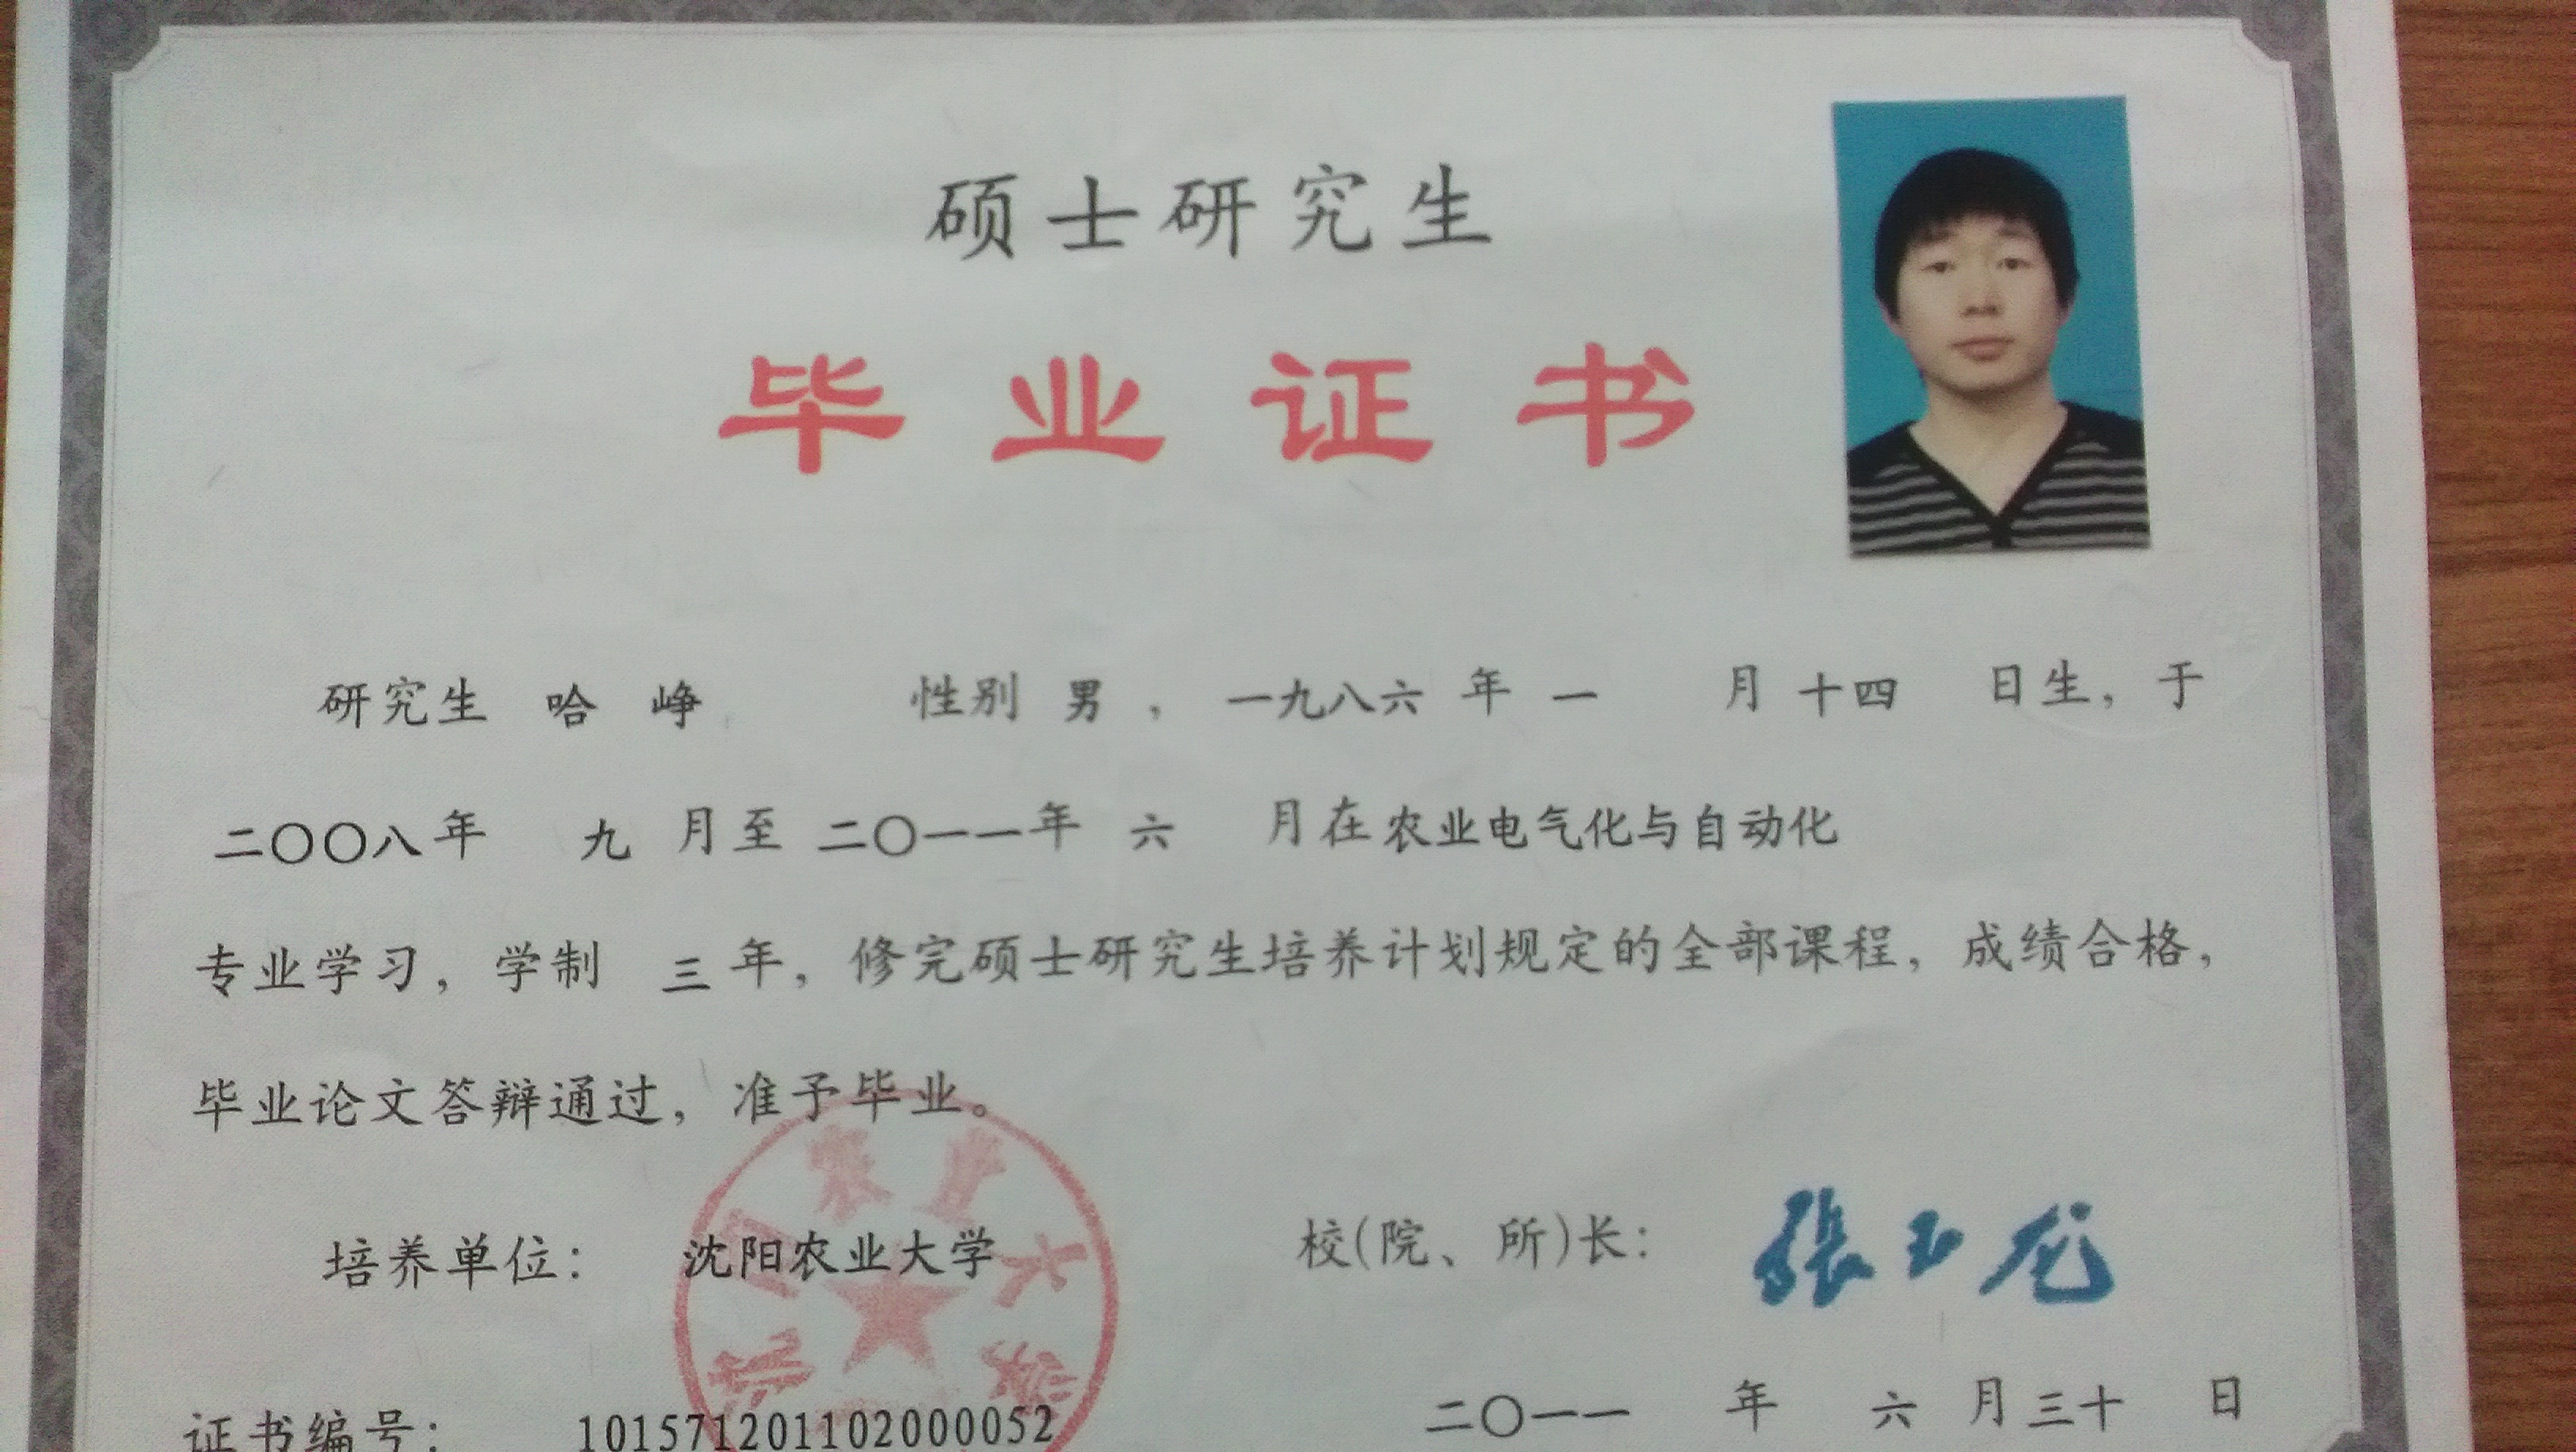 硕士研究生
毕业证书
研究生 哈 峥 性别 男 ， 一九八六 年 一 月 十四 日生，于
二〇〇八 年 九 月至 二〇一一 年 六 月在 农业电气化与自动化
专业学习，学制 三 年，修完硕士研究生培养计划规定的全部课程，成绩合格，
毕业论文答辩通过，准予毕业。
培养单位： 沈阳农业大学 校(院、所)长： 張玉龙
证书编号： 101571201102000052 二〇一一 年 六 月 三十 日